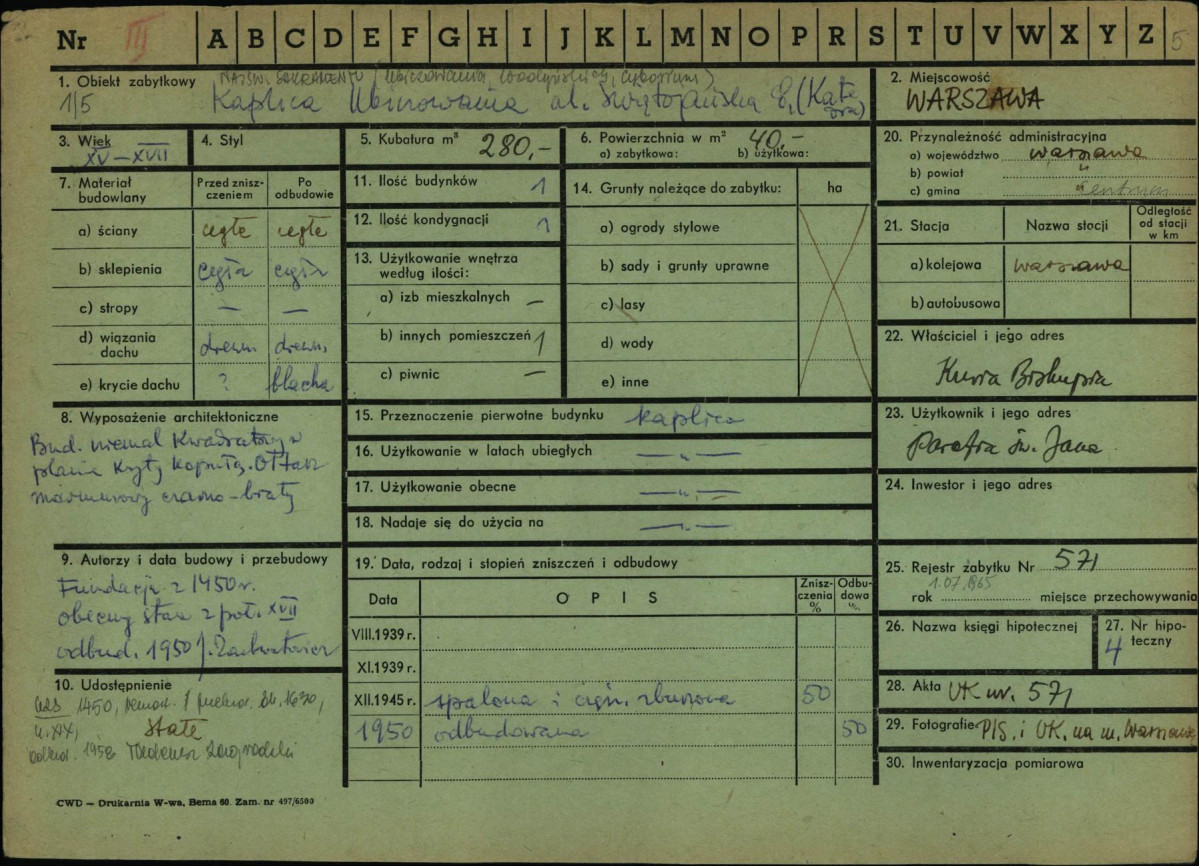 Nr III A B C D E F G H I J K L M N O P R S T U V W X Y Z 5
1. Obiekt zabytkowy NAJŚW. SAKRAMENTU (Ubiczowania, Cyborium)
1/5 Kaplica Ubiczowania ul. Świętojańska 8, (Katedra)
2. Miejscowość
WARSZAWA
3. Wiek
XV — XVII
4. Styl
5. Kubatura m³ 280,-
6. Powierzchnia w m² 40,-
a) zabytkowa: b) użytkowa:
7. Materiał budowlany
Przed zniszczeniem
Po odbudowie
a) ściany cegła cegła
b) sklepienia cegła cegła
c) stropy — —
d) wiązania dachu drewn. drewn.
e) krycie dachu ? blacha
8. Wyposażenie architektoniczne
Bud. niemal kwadratowy w
planie kryty kopułą. Ołtarz
marmurowy czarno-biały
9. Autorzy i data budowy i przebudowy
Fundacja z 1450 r.
obecny stan z poł. XVII
odbud. 1950 J. Zachwatowicz
10. Udostępnienie
1450, 1620,
XIX, Stałe
odbud. 1958 Tadeusz Zagrodzki
11. Ilość budynków 1
12. Ilość kondygnacji 1
13. Użytkowanie wnętrza
według ilości:
a) izb mieszkalnych —
b) innych pomieszczeń 1
c) piwnic —
14. Grunty należące do zabytku: ha
a) ogrody stylowe
b) sady i grunty uprawne
c) lasy
d) wody
e) inne
15. Przeznaczenie pierwotne budynku kaplica
16. Użytkowanie w latach ubiegłych —„—
17. Użytkowanie obecne —„—
18. Nadaje się do użycia na —„—
19. Data, rodzaj i stopień zniszczeń i odbudowy
Data OPIS Zniszczenia % Odbudowa %
VIII.1939 r.
XI.1939 r.
XII.1945 r. spalona i częśc. zburzona 50
1950 odbudowana 50
20. Przynależność administracyjna
a) województwo warszawa
b) powiat "
c) gmina " Centrum
21. Stacja Nazwa stacji Odległość od stacji w km
a) kolejowa warszawa
b) autobusowa
22. Właściciel i jego adres
Kuria Biskupia
23. Użytkownik i jego adres
Parafia św. Jana
24. Inwestor i jego adres
25. Rejestr zabytku Nr 571
rok 1.07.1965 miejsce przechowywania
26. Nazwa księgi hipotecznej
27. Nr hipoteczny
4
28. Akta UK nr. 571
29. Fotografie PIS. i UK. na m. Warszawę
30. Inwentaryzacja pomiarowa
CWD — Drukarnia W-wa, Bema 60. Zam. nr 497/6500